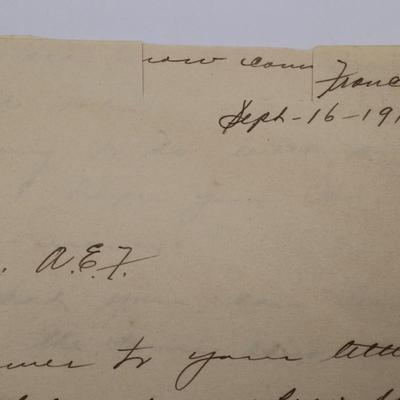 now com
Franc
Sept-16-191
. A.E.F.
wer to your litt